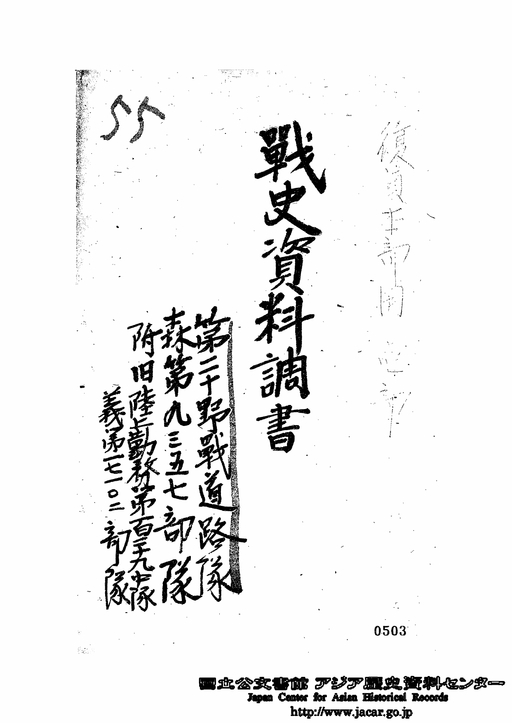 55
戰史資料調書
第二十野戰道路隊
森第九三五七部隊
附旧陸上勤務第百三十九中隊
義第一七一〇二部隊
0503
国立公文書館 アジア歴史資料センター
Japan Center for Asian Historical Records
http://www.jacar.go.jp